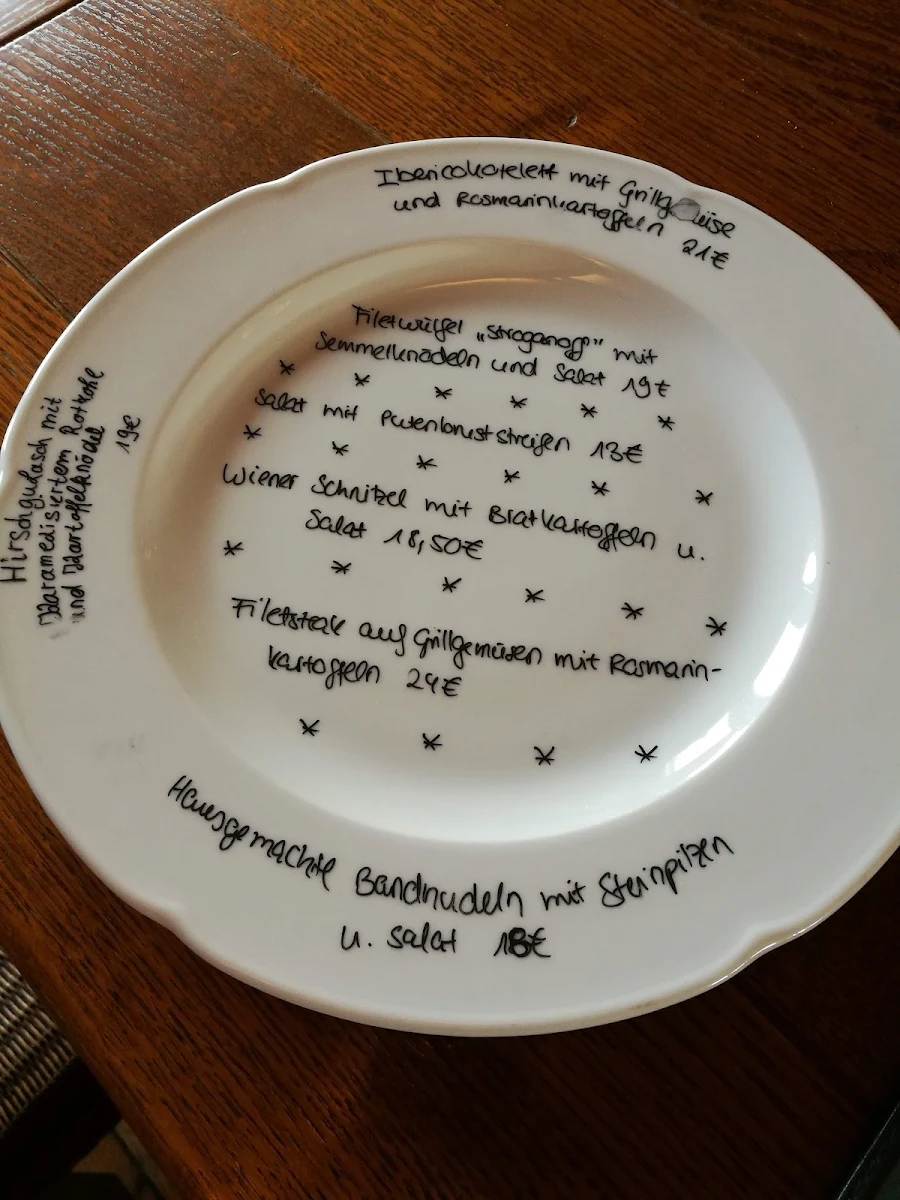 Ibericokotelett mit Grillgemüse
und Rosmarinkartoffeln 21€
Filetwürfel „Stroganoff" mit
Semmelknödeln und Salat 19€
* * * * * *
Salat mit Putenbruststreifen 13€
* * * * * *
Wiener Schnitzel mit Bratkartoffeln u.
Salat 18,50€
* * * * * *
Filetsteak auf Grillgemüsen mit Rosmarin-
kartoffeln 24€
* * * *
Hausgemachte Bandnudeln mit Steinpilzen
u. Salat 18€
Hirschgulasch mit
Karamedisiertem Rotkohl
und Kartoffelknödel
19€